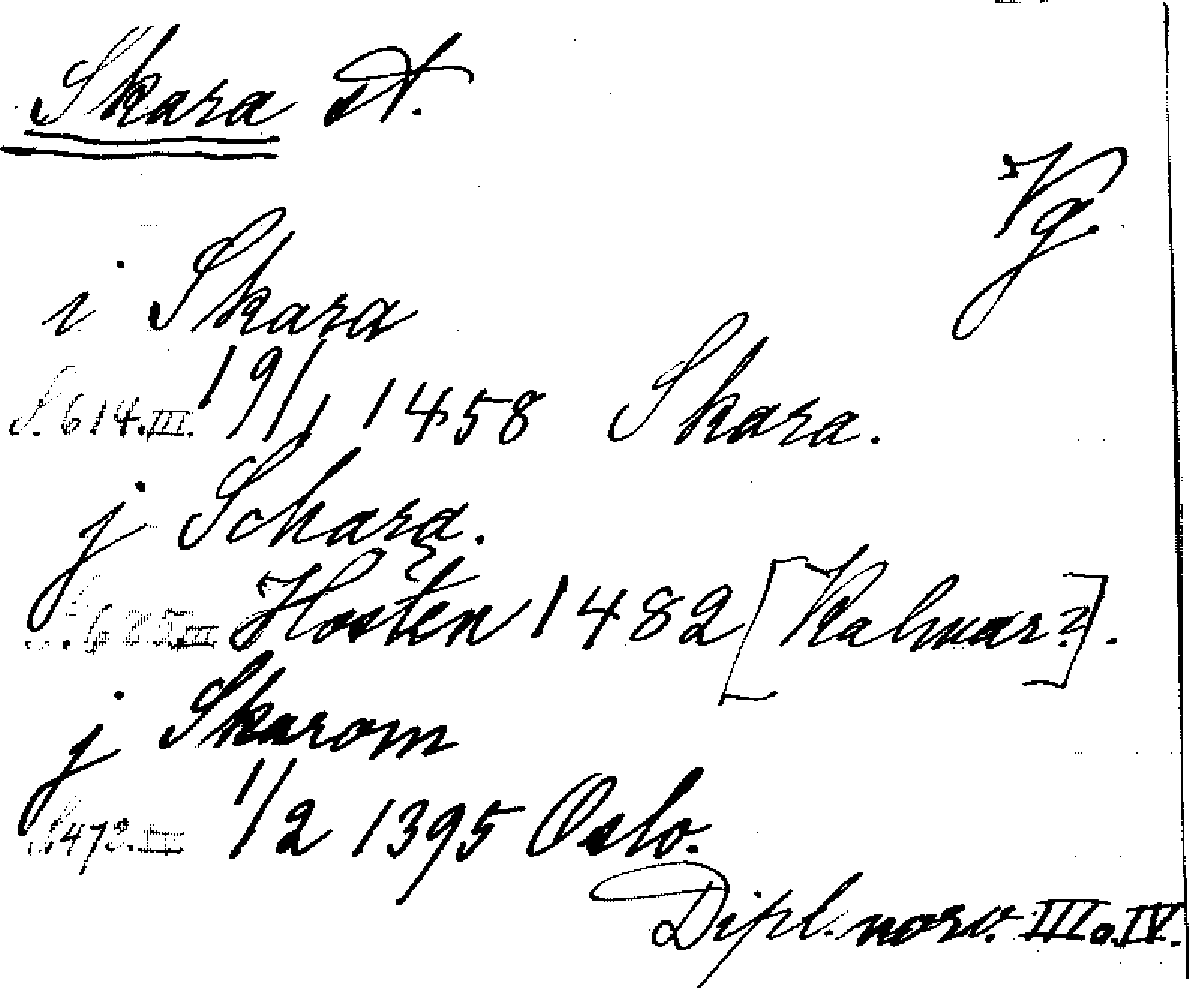 Skara st.
Vg.
i Skara
S. 614. III. 19/1 1458 Skara.
j Schara.
S. 685. III Hösten 1482 [Kalmar?].
j Skarom
S. 472. 1/2 1395 Oslo.
Dipl. norv. III o. IV.